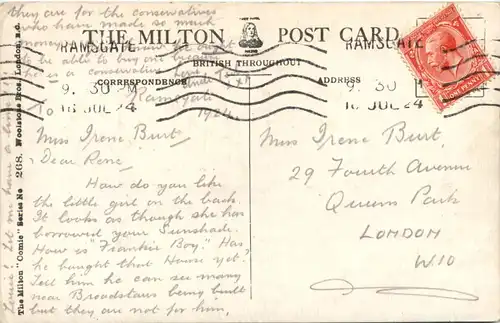 THE MILTON POST CARD
BRITISH THROUGHOUT
CORRESPONDENCE
ADDRESS
RAMSGATE
9. 30 M
16 JUL 24
RAMSGATE
9. 30 M
16 JUL 24
ONE PENNY
Ramsgate
1924
To
Miss Irene Burt
Dear Rene
How do you like
the little girl on the back.
It looks as though she has
borrowed your Sunshade.
How is "Frankie Boy." Has
he bought that House yet?
Tell him he can see many
near Broadstairs being built
but they are not for him,
they are for the conservatives
who have made so much
money
to be able to buy one because
he is a conservative
Let me have a line
Miss Irene Burt,
29 Fourth Avenue
Queens Park
LONDON
W.10
The Milton "Comic" Series No 268. Woolstone Bros., London, E.C.